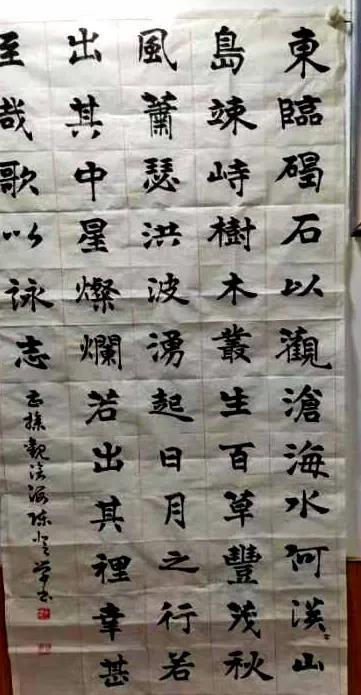 東臨碣石以觀滄海水何淡〻山
島竦峙樹木叢生百草豐茂秋
風蕭瑟洪波湧起日月之行若
出其中星燦爛若出其裡幸甚
至哉歌以詠志
觀滄海